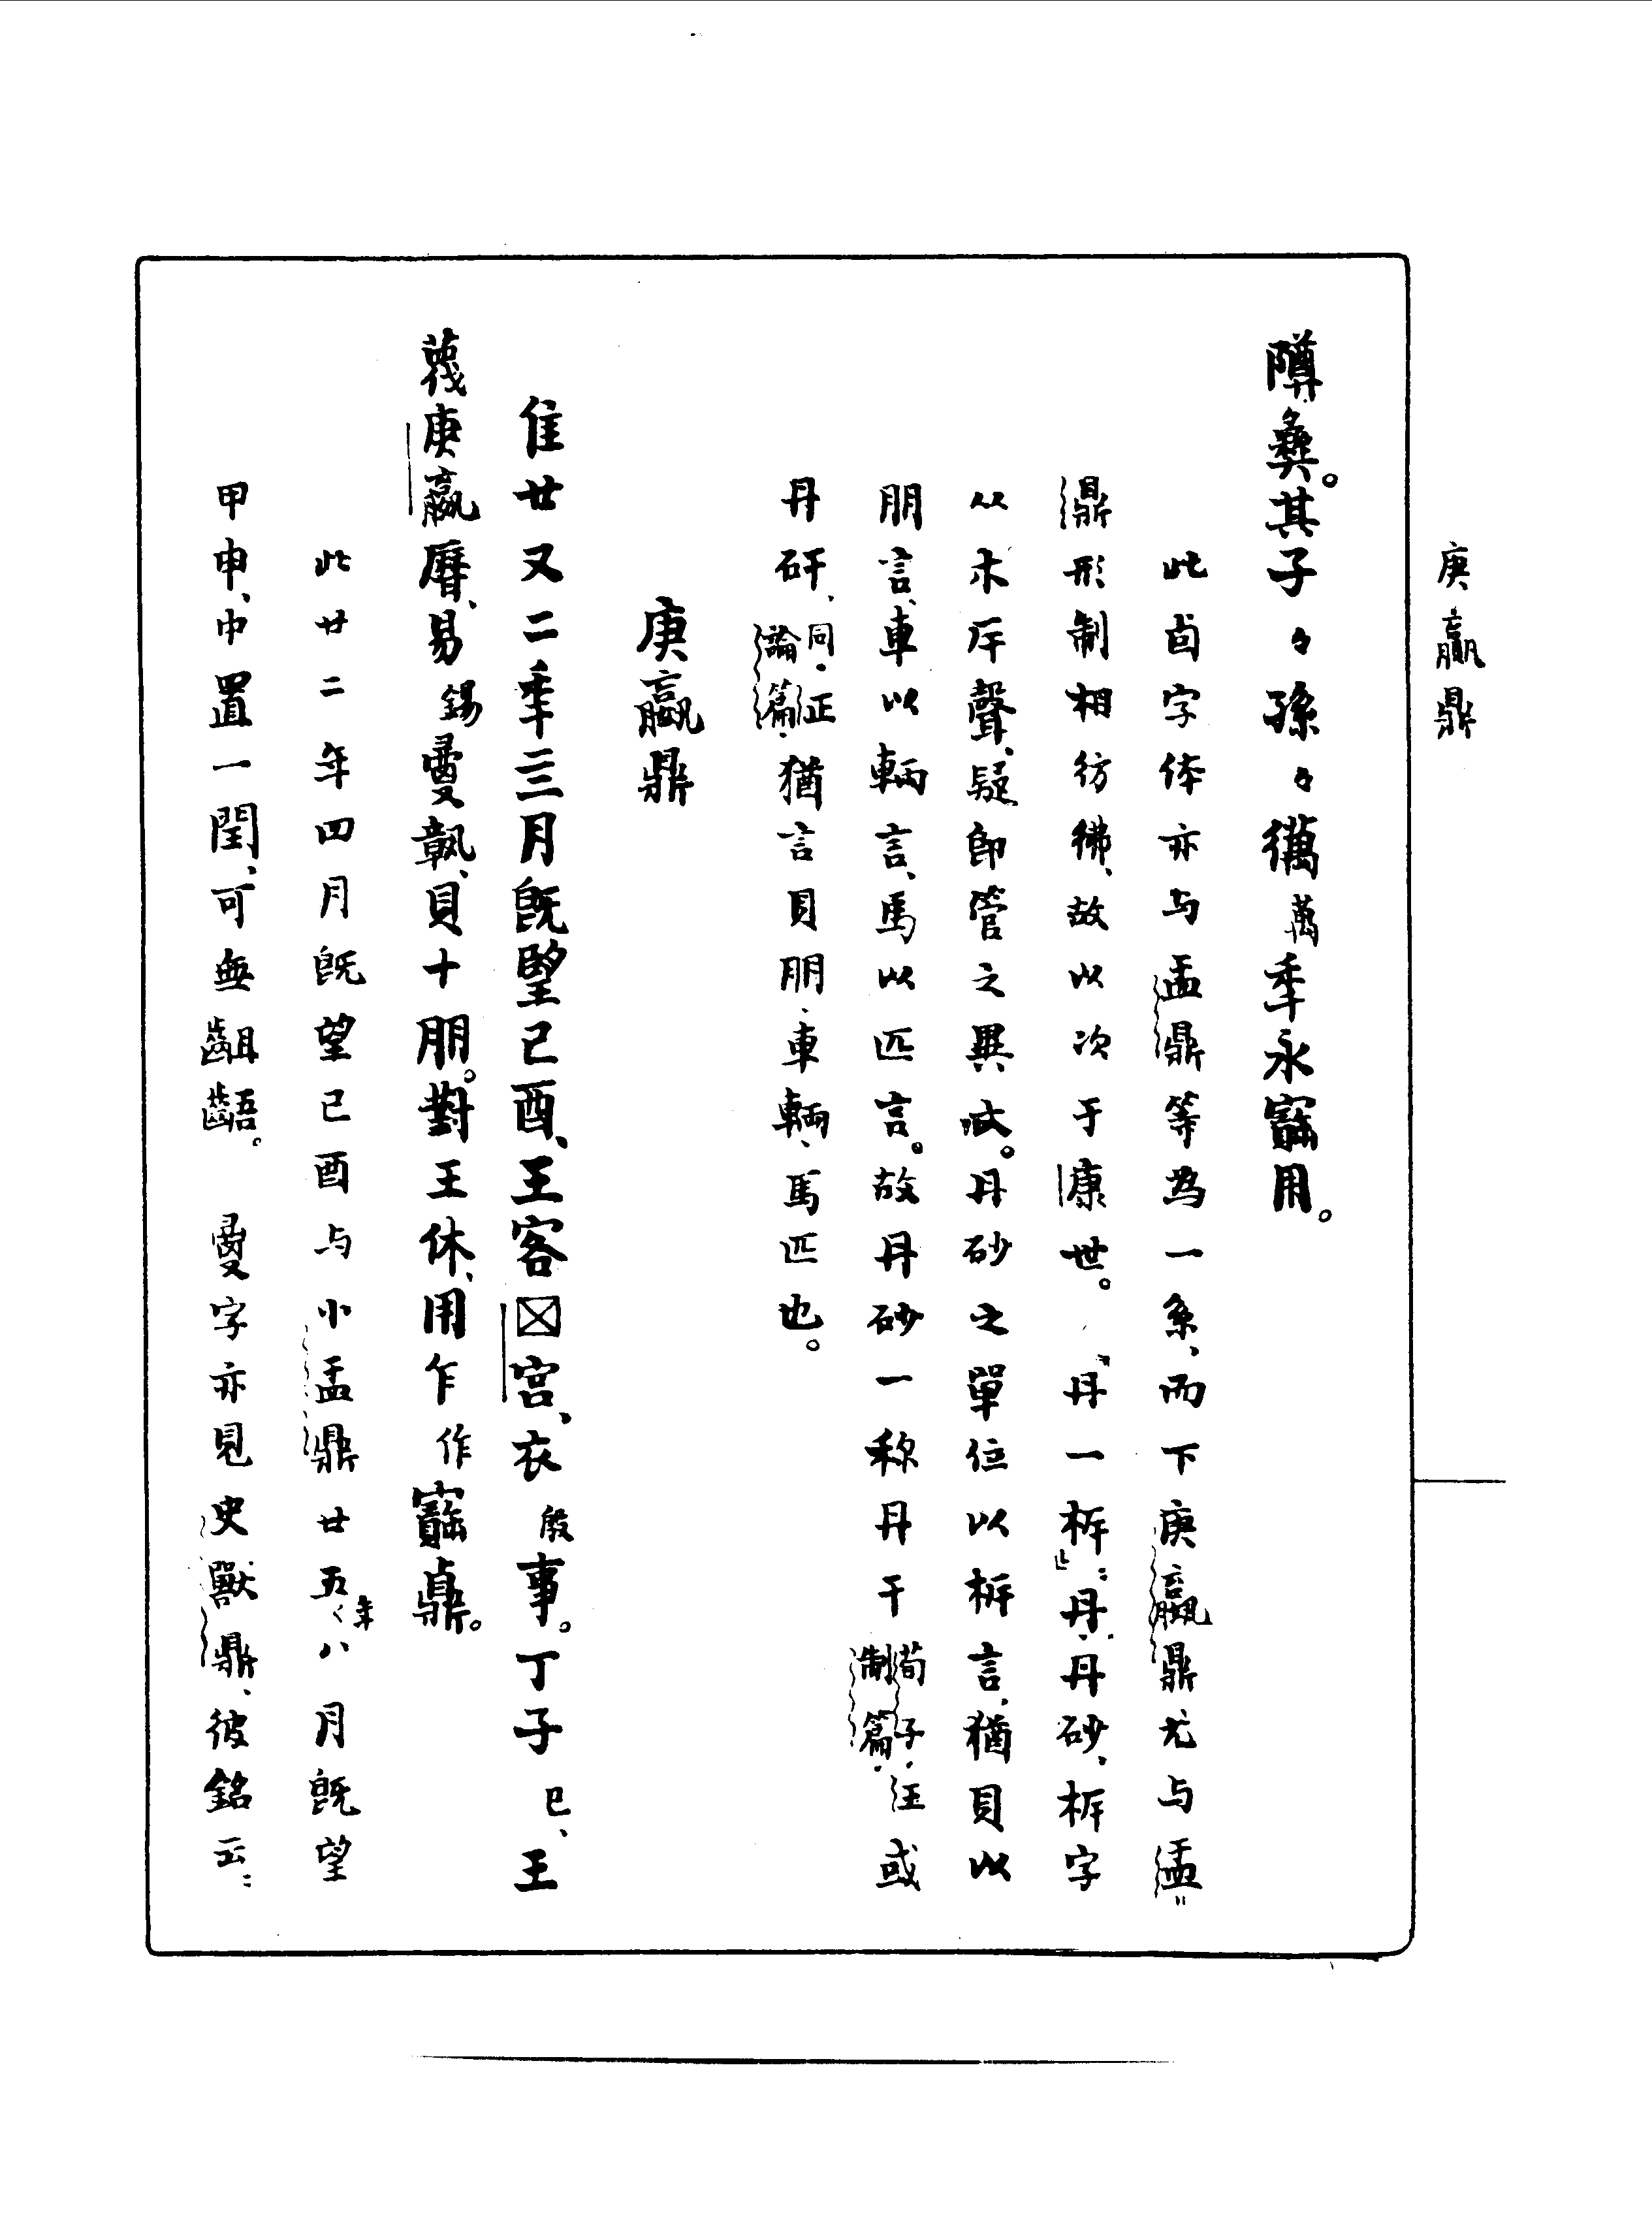 庚嬴鼎
䵼彝。其子〻孫〻䙴萬年永寶用。
此卣字体亦与盂鼎等為一系、而下庚嬴鼎尤与盂〻
鼎形制相彷彿、故以次于康世。「丹一㭊」：丹、丹砂、㭊字
从木厈聲、疑即管之異文。丹砂之單位以㭊言、猶貝以
朋言、車以輛言、馬以匹言。故丹砂一称丹干荀子·王制篇。或
丹矸、同·正論篇。猶言貝朋、車輛、馬匹也。
庚嬴鼎
隹廿又二年三月既望己酉、王客☒宮、衣殷事。丁子巳、王
蔑庚嬴曆、易錫㬅𩰬、貝十朋。對王休、用乍作寶鼎。
此廿二年四月既望己酉与小盂鼎廿五年八月既望
甲申、中置一閏、可無齟齬。 字亦見史獸鼎、彼銘云：